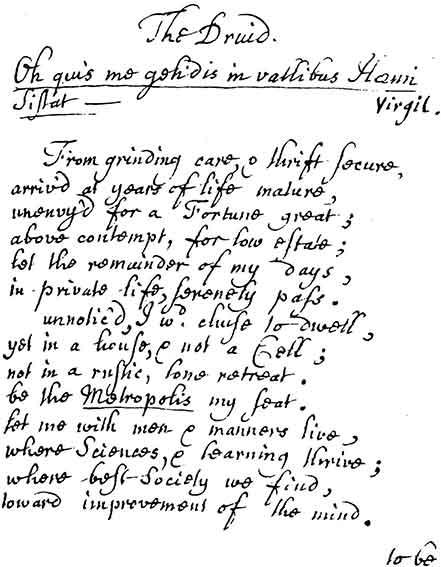 The Druid.
Oh quis me gelidis in vallibus Hæmi
Sistat —
Virgil.
From grinding care, & thrift secure,
arriv'd at years of life mature,
unenvy'd for a Fortune great;
above contempt, for low estate;
let the remainder of my days,
in private life, serenely pass.
unnotic'd, I wd. chuse to dwell,
yet in a house, & not a Cell;
not in a rustic, lone retreat.
be the Metropolis my seat.
let me with men & manners live,
where Sciences, & learning thrive;
where best Society we find,
toward improvement of the mind.
to be